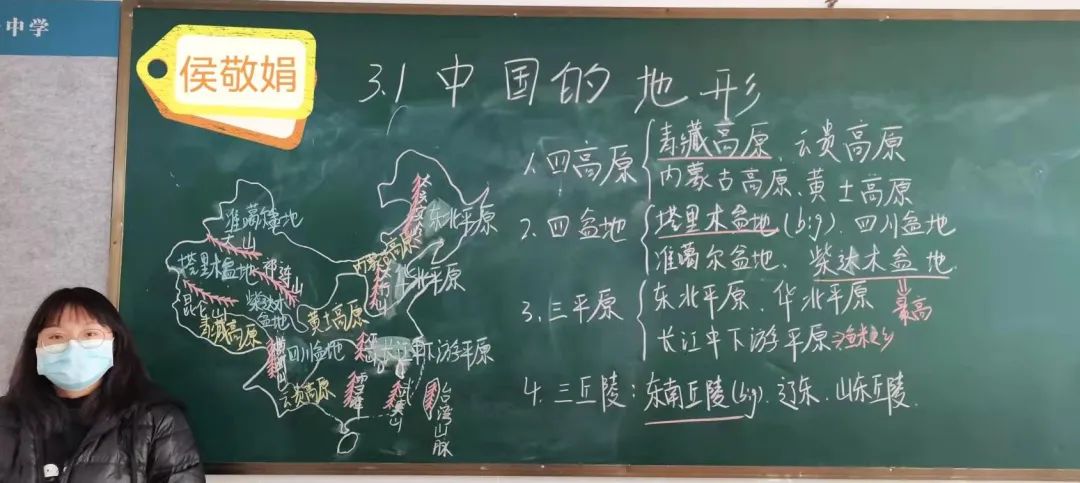 中学
侯敬娟
3.1 中国的地形
1.四高原
青藏高原、云贵高原
内蒙古高原、黄土高原
2.四盆地
塔里木盆地(big).四川盆地
准葛尔盆地、柴达木盆地
最高
3.三平原
东北平原、华北平原
长江中下游平原
渔米之乡
4.三丘陵:东南丘陵(big).辽东、山东丘陵.
大兴安岭
东北平原
准葛尔盆地
天山
塔里木盆地
祁连山
内蒙古高原
华北平原
昆仑山
柴达木盆地
青藏高原
黄土高原
四川盆地
长江中下游平原
云贵高原
武夷山
台湾山脉